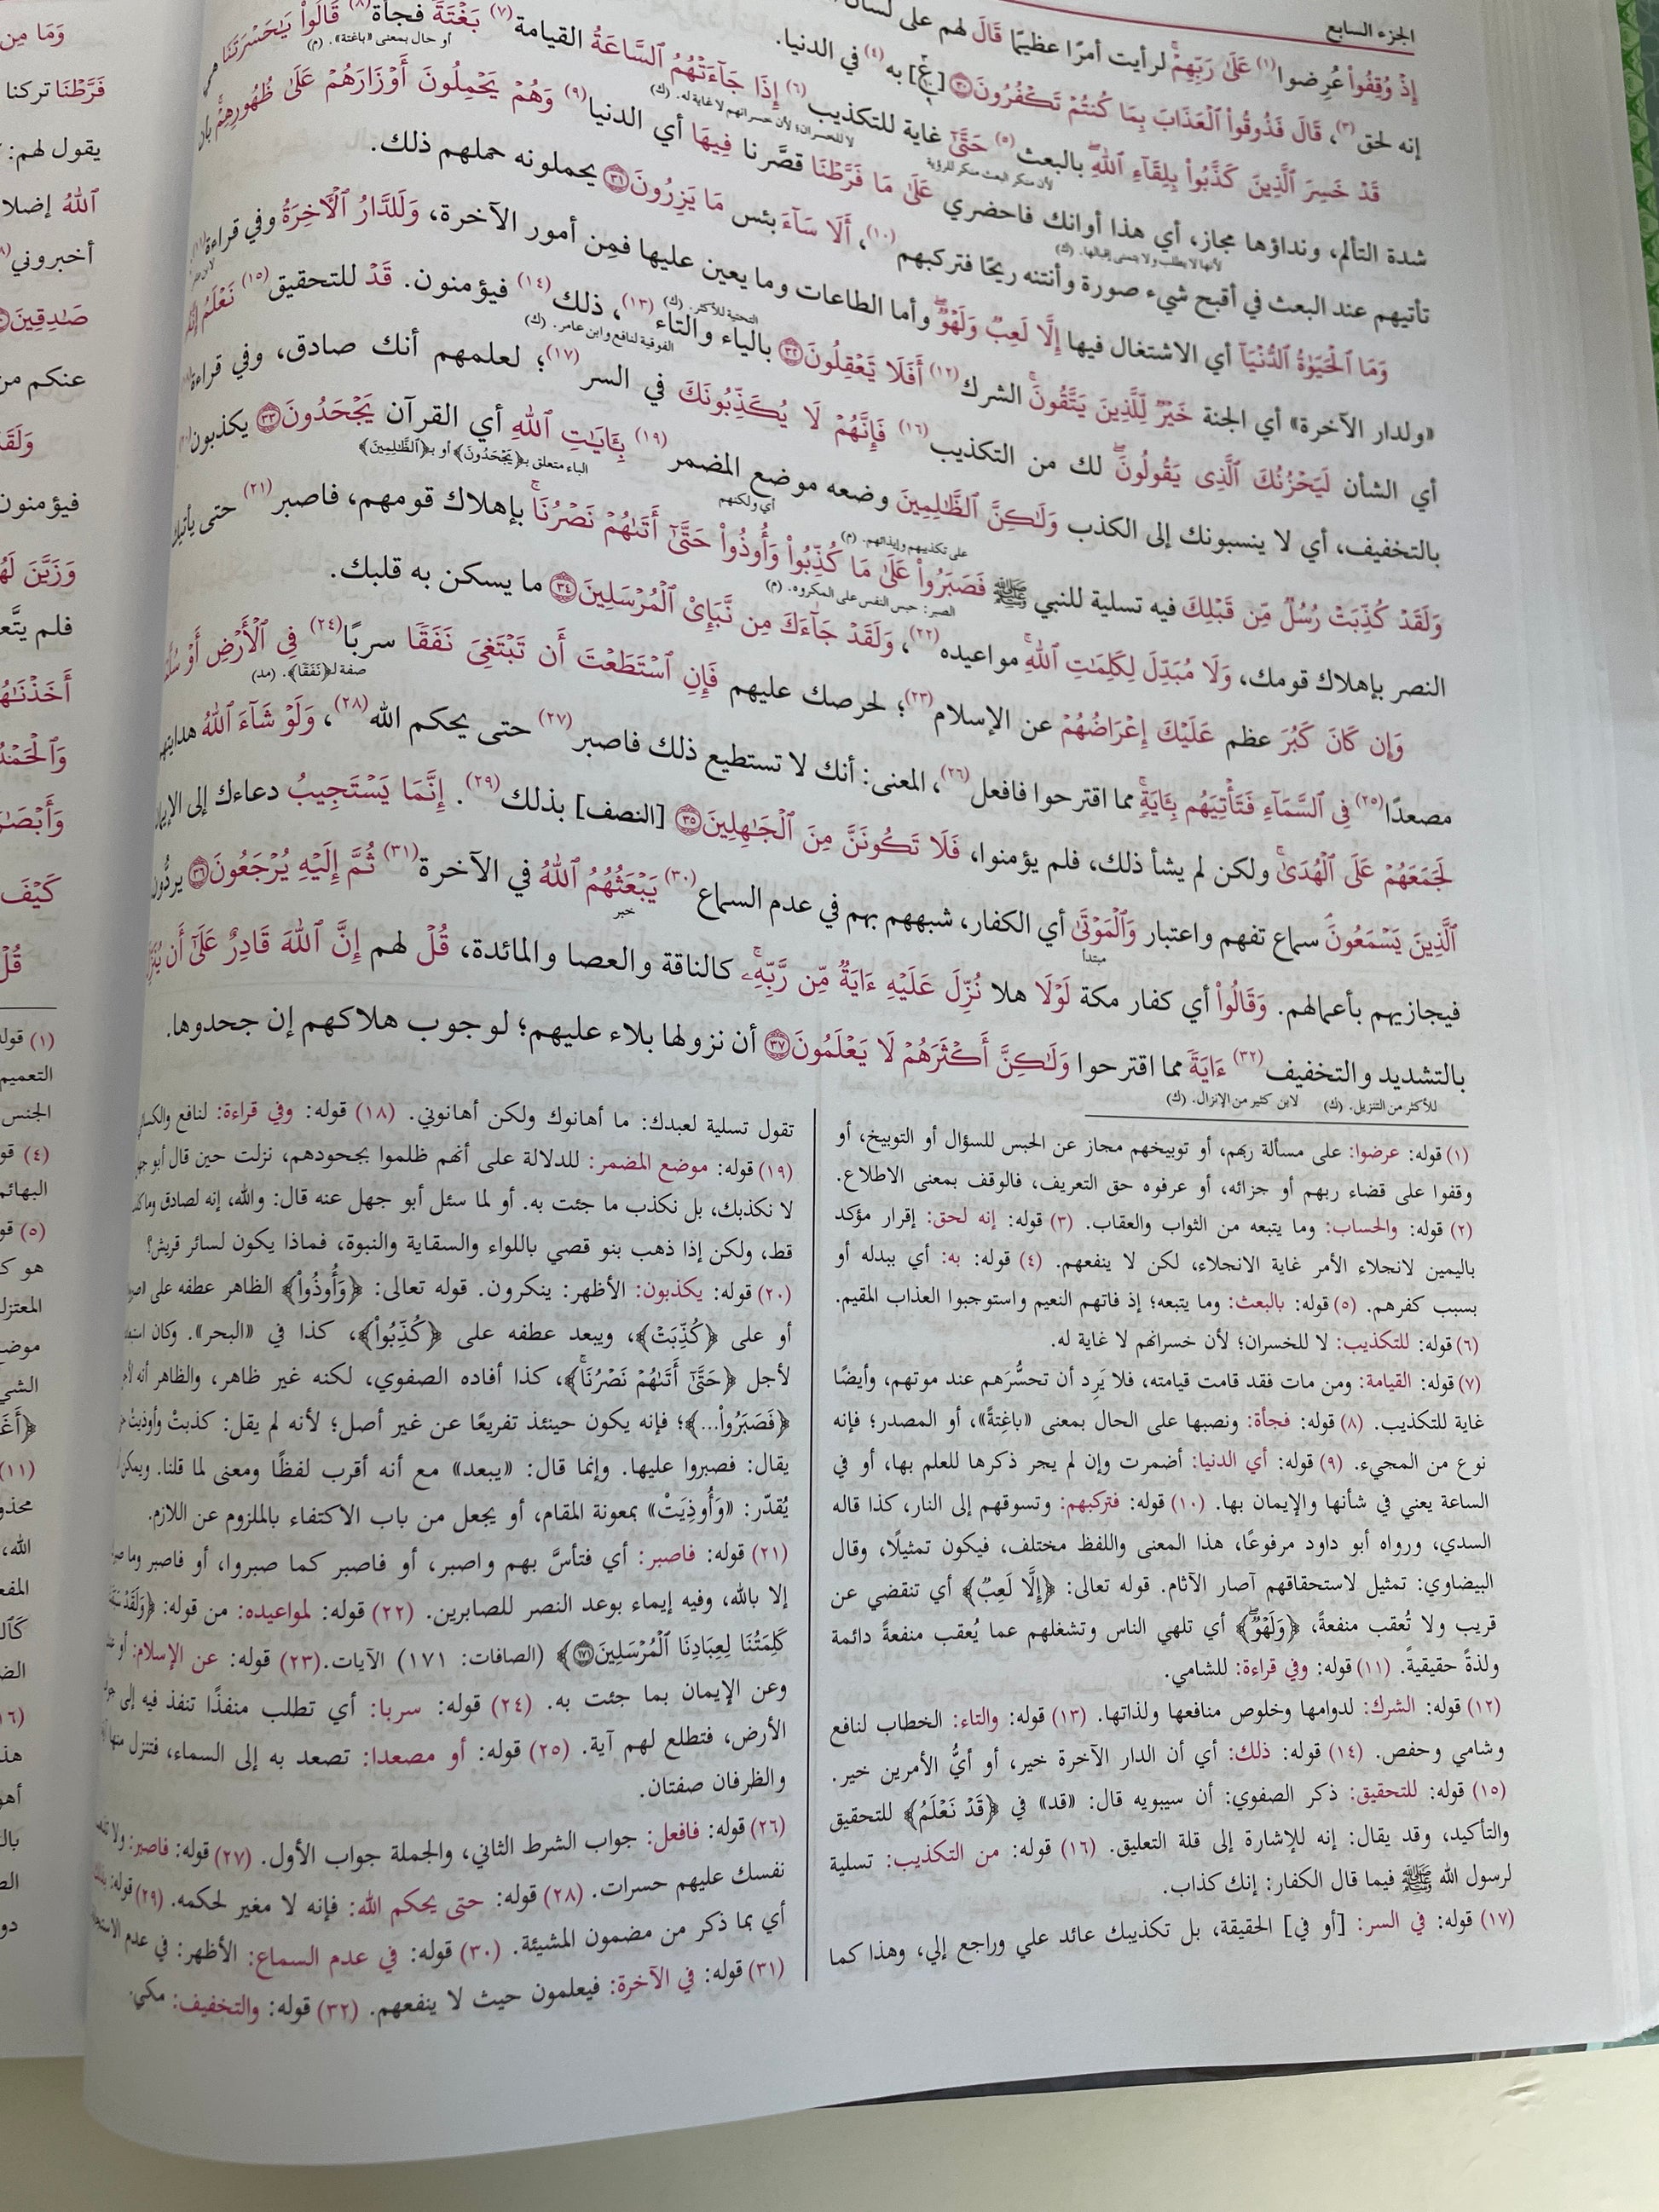 الجزء السابع
إِذْ وُقِفُوا۟ عُرِضوا(١) عَلَىٰ رَبِّهِمْ ۚ لرأيت أمرًا عظيمًا قَالَ لهم على لسان
إنه لحق(٣)، قَالَ فَذُوقُوا۟ ٱلْعَذَابَ بِمَا كُنتُمْ تَكْفُرُونَ ٣٠ [ع] به(٤) في الدنيا.
قَدْ خَسِرَ ٱلَّذِينَ كَذَّبُوا۟ بِلِقَآءِ ٱللَّهِ ۖ بالبعث(٥) حَتَّىٰٓ غاية للتكذيب(٦) إِذَا جَآءَتْهُمُ ٱلسَّاعَةُ القيامة(٧) بَغْتَةً فجأة(٨) قَالُوا۟ يَـٰحَسْرَتَنَا هي
لأن منكر البعث منكر للرؤية لا للخسران؛ لأن خسرانهم لا غاية له. (ك) أو حال بمعنى «باغتة». (م)
شدة التألم، ونداؤها مجاز، أي هذا أوانك فاحضري عَلَىٰ مَا فَرَّطْنَا قصَّرنا فِيهَا أي الدنيا(٩) وَهُمْ يَحْمِلُونَ أَوْزَارَهُمْ عَلَىٰ ظُهُورِهِمْ ۚ بأن
لأنها لا يطلب ولا يتمنى إقبالها. (ك)
تأتيهم عند البعث في أقبح شيء صورة وأنتنه ريحًا فتركبهم(١٠)، أَلَا سَآءَ بئس مَا يَزِرُونَ ٣١ يحملونه حملهم ذلك.
وَمَا ٱلْحَيَوٰةُ ٱلدُّنْيَآ أي الاشتغال فيها إِلَّا لَعِبٌ وَلَهْوٌ ۖ وأما الطاعات وما يعين عليها فمِن أمور الآخرة، وَلَلدَّارُ ٱلْـَٔاخِرَةُ وفي قراءة(١١)
«ولدار الآخرة» أي الجنة خَيْرٌ لِّلَّذِينَ يَتَّقُونَ ۗ الشرك(١٢) أَفَلَا تَعْقِلُونَ ٣٢ بالياء والتاء(١٣)، ذلك(١٤) فيؤمنون. قَدْ للتحقيق(١٥) نَعْلَمُ إِنَّهُۥ
التحتية للأكثر. (ك) الفوقية لنافع وابن عامر. (ك)
أي الشأن لَيَحْزُنُكَ ٱلَّذِى يَقُولُونَ ۖ لك من التكذيب(١٦) فَإِنَّهُمْ لَا يُكَذِّبُونَكَ في السر(١٧)؛ لعلمهم أنك صادق، وفي قراءة
بالتخفيف، أي لا ينسبونك إلى الكذب وَلَـٰكِنَّ ٱلظَّـٰلِمِينَ وضعه موضع المضمر(١٩) بِـَٔايَـٰتِ ٱللَّهِ أي القرآن يَجْحَدُونَ ٣٣ يكذبون
أي ولكنهم الباء متعلق بـ﴿يَجْحَدُونَ﴾ أو بـ﴿ٱلظَّـٰلِمِينَ﴾
وَلَقَدْ كُذِّبَتْ رُسُلٌ مِّن قَبْلِكَ فيه تسلية للنبي ﷺ فَصَبَرُوا۟ عَلَىٰ مَا كُذِّبُوا۟ وَأُوذُوا۟ حَتَّىٰٓ أَتَىٰهُمْ نَصْرُنَا ۚ بإهلاك قومهم، فاصبر(٢١) حتى يأتيك
على تكذيبهم وإيذائهم. (م) الصبر: حبس النفس على المكروه. (م)
النصر بإهلاك قومك، وَلَا مُبَدِّلَ لِكَلِمَـٰتِ ٱللَّهِ ۚ مواعيده(٢٢)، وَلَقَدْ جَآءَكَ مِن نَّبَإِى۟ ٱلْمُرْسَلِينَ ٣٤ ما يسكن به قلبك.
وَإِن كَانَ كَبُرَ عظم عَلَيْكَ إِعْرَاضُهُمْ عن الإسلام(٢٣)؛ لحرصك عليهم فَإِنِ ٱسْتَطَعْتَ أَن تَبْتَغِىَ نَفَقًا سربًا(٢٤) فِى ٱلْأَرْضِ أَوْ سُلَّمًا
صفة لـ﴿نَفَقًا﴾. (مد)
مصعدًا(٢٥) فِى ٱلسَّمَآءِ فَتَأْتِيَهُم بِـَٔايَةٍ ۚ مما اقترحوا فافعل(٢٦)، المعنى: أنك لا تستطيع ذلك فاصبر(٢٧) حتى يحكم الله(٢٨)، وَلَوْ شَآءَ ٱللَّهُ هدايتهم
لَجَمَعَهُمْ عَلَى ٱلْهُدَىٰ ۚ ولكن لم يشأ ذلك، فلم يؤمنوا، فَلَا تَكُونَنَّ مِنَ ٱلْجَـٰهِلِينَ ٣٥ [النصف] بذلك(٢٩). إِنَّمَا يَسْتَجِيبُ دعاءك إلى الإيمان
ٱلَّذِينَ يَسْمَعُونَ ۘ سماع تفهم واعتبار وَٱلْمَوْتَىٰ أي الكفار، شبههم بهم في عدم السماع(٣٠) يَبْعَثُهُمُ ٱللَّهُ في الآخرة(٣١) ثُمَّ إِلَيْهِ يُرْجَعُونَ ٣٦ يردُّون
مبتدأ خبر
فيجازيهم بأعمالهم. وَقَالُوا۟ أي كفار مكة لَوْلَا هلا نُزِّلَ عَلَيْهِ ءَايَةٌ مِّن رَّبِّهِۦ ۚ كالناقة والعصا والمائدة، قُلْ لهم إِنَّ ٱللَّهَ قَادِرٌ عَلَىٰٓ أَن يُنَزِّلَ
بالتشديد والتخفيف(٣٢) ءَايَةً مما اقترحوا وَلَـٰكِنَّ أَكْثَرَهُمْ لَا يَعْلَمُونَ ٣٧ أن نزولها بلاء عليهم؛ لوجوب هلاكهم إن جحدوها.
للأكثر من التنزيل. (ك) لابن كثير من الإنزال. (ك)
(١) قوله: عرضوا: على مسألة ربهم، أو توبيخهم مجاز عن الحبس للسؤال أو التوبيخ، أو
وقفوا على قضاء ربهم أو جزائه، أو عرفوه حق التعريف، فالوقف بمعنى الاطلاع.
(٢) قوله: والحساب: وما يتبعه من الثواب والعقاب. (٣) قوله: إنه لحق: إقرار مؤكد
باليمين لانجلاء الأمر غاية الانجلاء، لكن لا ينفعهم. (٤) قوله: به: أي ببدله أو
بسبب كفرهم. (٥) قوله: بالبعث: وما يتبعه؛ إذ فاتهم النعيم واستوجبوا العذاب المقيم.
(٦) قوله: للتكذيب: لا للخسران؛ لأن خسرانهم لا غاية له.
(٧) قوله: القيامة: ومن مات فقد قامت قيامته، فلا يَرِد أن تحسُّرَهم عند موتهم، وأيضًا
غاية للتكذيب. (٨) قوله: فجأة: ونصبها على الحال بمعنى «باغِتةً»، أو المصدر؛ فإنه
نوع من المجيء. (٩) قوله: أي الدنيا: أضمرت وإن لم يجر ذكرها للعلم بها، أو في
الساعة يعني في شأنها والإيمان بها. (١٠) قوله: فتركبهم: وتسوقهم إلى النار، كذا قاله
السدي، ورواه أبو داود مرفوعًا، هذا المعنى واللفظ مختلف، فيكون تمثيلًا، وقال
البيضاوي: تمثيل لاستحقاقهم آصار الآثام. قوله تعالى: ﴿إِلَّا لَعِبٌ﴾ أي تنقضي عن
قريب ولا تُعقب منفعةً، ﴿وَلَهْوٌ ۖ﴾ أي تلهي الناس وتشغلهم عما يُعقب منفعةً دائمة
ولذةً حقيقيةً. (١١) قوله: وفي قراءة: للشامي.
(١٢) قوله: الشرك: لدوامها وخلوص منافعها ولذاتها. (١٣) قوله: والتاء: الخطاب لنافع
وشامي وحفص. (١٤) قوله: ذلك: أي أن الدار الآخرة خير، أو أيُّ الأمرين خير.
(١٥) قوله: للتحقيق: ذكر الصفوي: أن سيبويه قال: «قد» في ﴿قَدْ نَعْلَمُ﴾ للتحقيق
والتأكيد، وقد يقال: إنه للإشارة إلى قلة التعليق. (١٦) قوله: من التكذيب: تسلية
لرسول الله ﷺ فيما قال الكفار: إنك كذاب.
(١٧) قوله: في السر: [أو في] الحقيقة، بل تكذيبك عائد علي وراجع إلي، وهذا كما
تقول تسلية لعبدك: ما أهانوك ولكن أهانوني. (١٨) قوله: وفي قراءة: لنافع والكسائي
(١٩) قوله: موضع المضمر: للدلالة على أنهم ظلموا بجحودهم، نزلت حين قال أبو جهل
لا نكذبك، بل نكذب ما جئت به. أو لما سئل أبو جهل عنه قال: والله، إنه لصادق وما كذب
قط، ولكن إذا ذهب بنو قصي باللواء والسقاية والنبوة، فماذا يكون لسائر قريش؟
(٢٠) قوله: يكذبون: الأظهر: ينكرون. قوله تعالى: ﴿وَأُوذُوا۟﴾ الظاهر عطفه على
أو على ﴿كُذِّبَتْ﴾، ويبعد عطفه على ﴿كُذِّبُوا۟﴾، كذا في «البحر». وكان
لأجل ﴿حَتَّىٰٓ أَتَىٰهُمْ نَصْرُنَا ۚ﴾، كذا أفاده الصفوي، لكنه غير ظاهر، والظاهر أنه
﴿فَصَبَرُوا۟...﴾؛ فإنه يكون حينئذ تفريعًا عن غير أصل؛ لأنه لم يقل: كذبتْ وأوذيتْ
يقال: فصبروا عليها. وإنما قال: «يبعد» مع أنه أقرب لفظًا ومعنى لما قلنا. ويمكن
يُقدّر: «وَأُوذِيَتْ» بمعونة المقام، أو يجعل من باب الاكتفاء بالملزوم عن اللازم.
(٢١) قوله: فاصبر: أي فتأسَّ بهم واصبر، أو فاصبر كما صبروا، أو فاصبر وما
إلا بالله، وفيه إيماء بوعد النصر للصابرين. (٢٢) قوله: لمواعيده: من قوله: ﴿وَلَقَدْ سَبَقَتْ
كَلِمَتُنَا لِعِبَادِنَا ٱلْمُرْسَلِينَ ١٧١﴾ (الصافات: ١٧١) الآيات. (٢٣) قوله: عن الإسلام: أو
وعن الإيمان بما جئت به. (٢٤) قوله: سربا: أي تطلب منفذًا تنفذ فيه إلى
الأرض، فتطلع لهم آية. (٢٥) قوله: أو مصعدا: تصعد به إلى السماء، فتنزل منها
والظرفان صفتان.
(٢٦) قوله: فافعل: جواب الشرط الثاني، والجملة جواب الأول. (٢٧) قوله: فاصبر:
نفسك عليهم حسرات. (٢٨) قوله: حتى يحكم الله: فإنه لا مغير لحكمه. (٢٩) قوله:
أي بما ذكر من مضمون المشيئة. (٣٠) قوله: في عدم السماع: الأظهر: في عدم
(٣١) قوله: في الآخرة: فيعلمون حيث لا ينفعهم. (٣٢) قوله: والتخفيف: مكي.
وَمَا مِن
فَرَّطْنَا تركنا
يقول لهم:
ٱللَّهُ إضلا
أخبروني
صَـٰدِقِينَ
عنكم من
وَلَقَدْ
فيؤمنون
وَزَيَّنَ لَهُ
فلم يتَّع
أَخَذْنَـٰهُ
وَٱلْحَمْدُ
وَأَبْصَـٰرَ
كَيْفَ
قُلْ
(١) قوله
التعميم
الجنس
(٤) قو
البهائم
(٥) قو
هو ك
المعتزل
موضع
الشي
(١١)
محذو
الله،
المفع